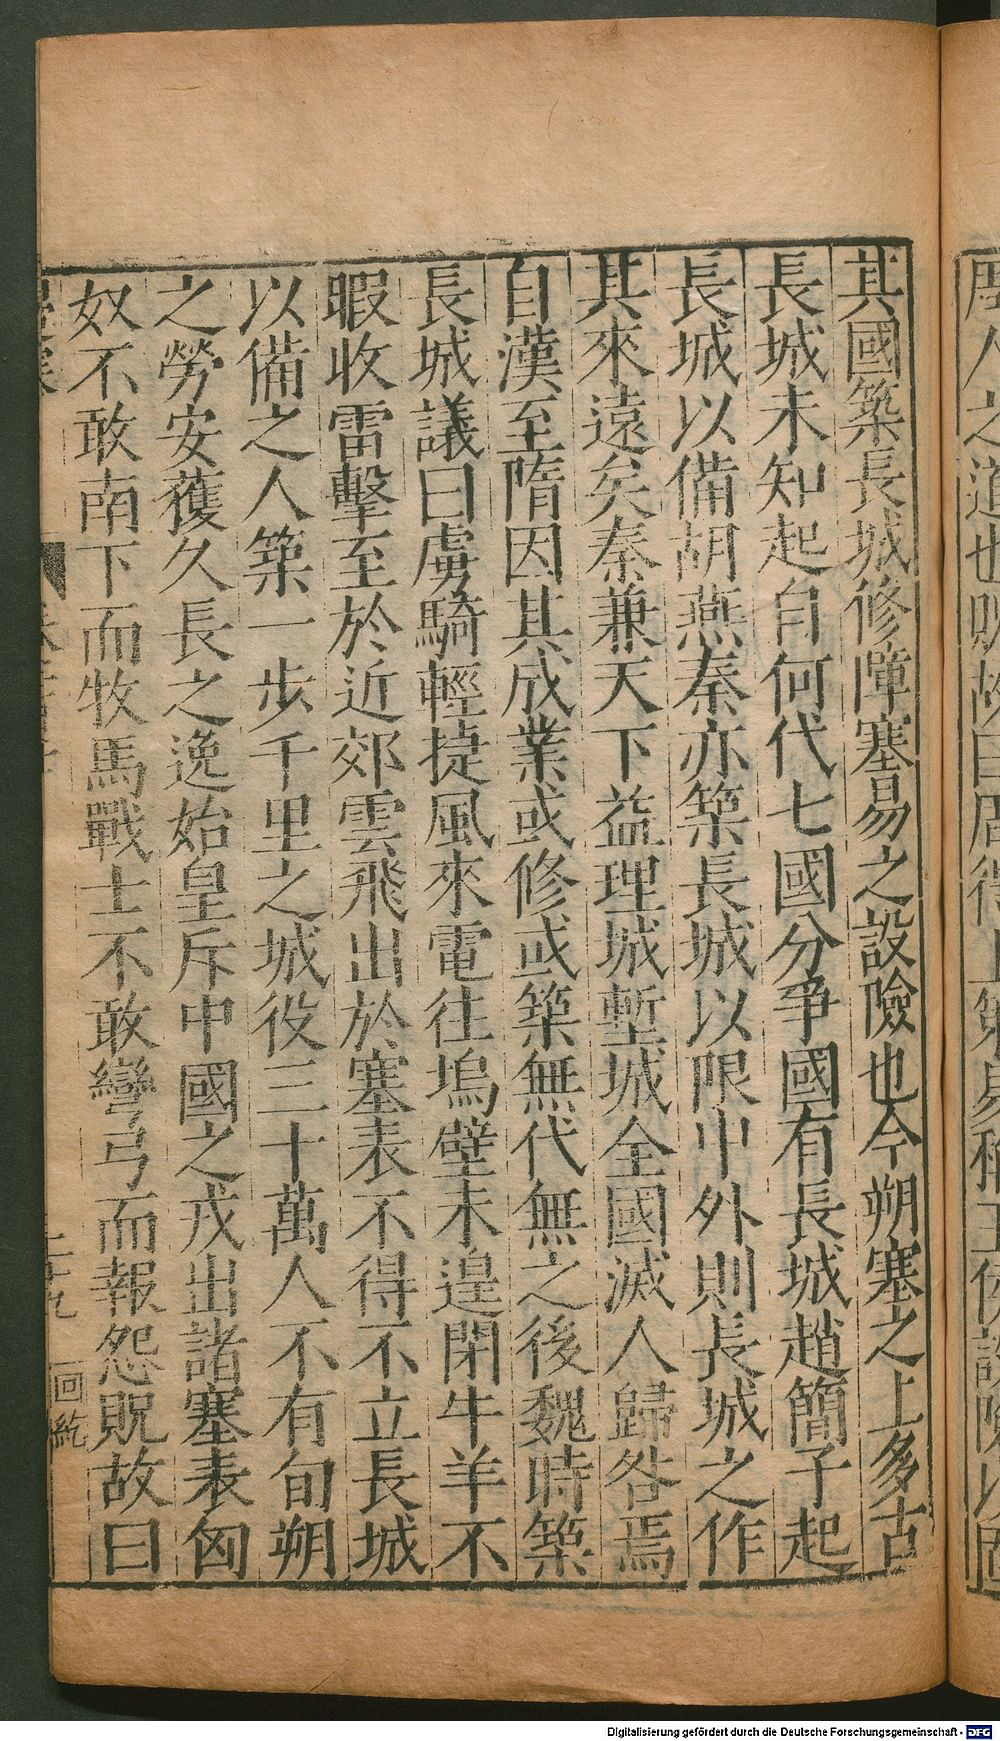 其國築長城修障塞易之設險也今朔塞之上多古
長城未知起自何代七國分爭國有長城趙簡子起
長城以備胡燕秦亦築長城以限中外則長城之作
其來遠矣秦兼天下益理城塹城全國滅人歸咎焉
自漢至隋因其成業或修或築無代無之後魏時築
長城議曰虜騎輕捷風來電往塢壁未遑閉牛羊不
暇收雷擊至於近郊雲飛出於塞表不得不立長城
以備之人築一步千里之城役三十萬人不有旬朔
之勞安獲久長之逸始皇斥中國之戎出諸塞表匈
奴不敢南下而牧馬戰士不敢彎弓而報怨貺故曰
二十九
回紇
Digitalisierung gefördert durch die Deutsche Forschungsgemeinschaft - DFG